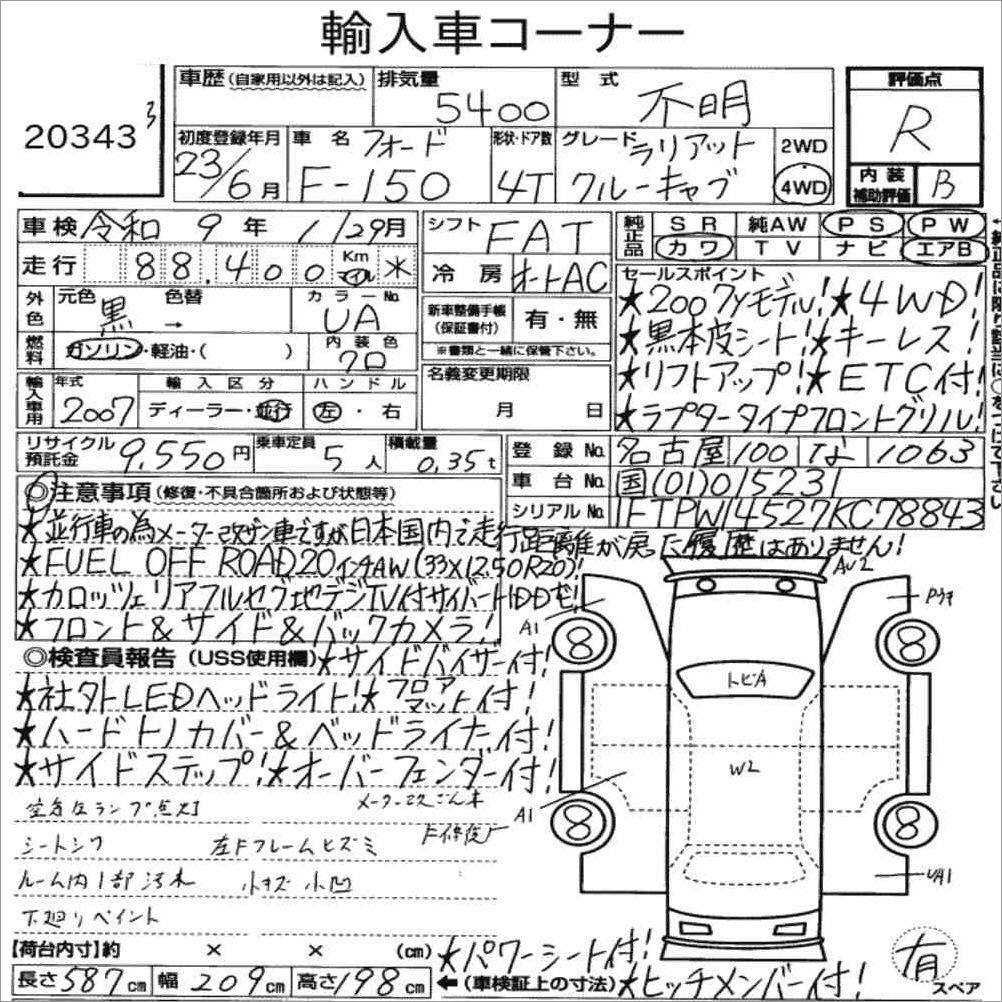 輸入車コーナー
20343 3
車歴(自家用以外は記入)
排気量 5400
型式 不明
評価点 R
初度登録年月 23/6月
車名 フォード F-150
形状・ドア数 4T
グレード ラリアット クルーキャブ
2WD
4WD
内装補助評価 B
車検 令和 9年 1/29月
シフト FAT
純正品 SR 純AW PS PW
カワ TV ナビ エアB
走行 88,400 Km マイル ✳
冷房 オートAC
セールスポイント
外色 元色 黒 → 色替
カラーNo. UA
新車整備手帳(保証書付) 有・無
※書類と一緒に保管下さい。
★2007yモデル!★4WD!
★黒本皮シート!★キーレス!
燃料 ガソリン・軽油・( )
内装色 クロ
名義変更期限 月 日
★リフトアップ!★ETC付!
★ラプタータイプフロントグリル!
輸入車用 年式 2007
輸入区分 ディーラー・並行
ハンドル 左・右
リサイクル預託金 9,550円
乗車定員 5人
積載量 0.35t
登録No. 名古屋 100 な 1063
車台No. 国(01)015231
シリアルNo. 1FTPW14527KC78843
◎注意事項(修復・不具合箇所および状態等)
★並行車の為メーター改ザン車ですが日本国内で走行距離が戻った履歴はありません!
★FUEL OFF ROAD20インチAW(33X12.50R20)!
★カロッツェリアフルセグ地デジTV付サイバーHDDナビ!
★フロント&サイド&バックカメラ!
◎検査員報告(USS使用欄)★サイドバイザー付!
★社外LEDヘッドライト!★フロアマット付!
★ハードトノカバー&ベッドライナー付!
★サイドステップ!★オーバーフェンダー付!
空気圧ランプ点灯 メーター改ざん車
シートシワ 左Fフレームヒズミ
ルーム内1部汚れ 小キズ 小凹
下廻りペイント
【荷台内寸】約 × × (cm)
★パワーシート付!
長さ587cm 幅209cm 高さ198cm
←(車検証上の寸法)★ヒッチメンバー付!
AU2
A1
8
8
トビA
W2
A1
8
8
UA1
有
スペア